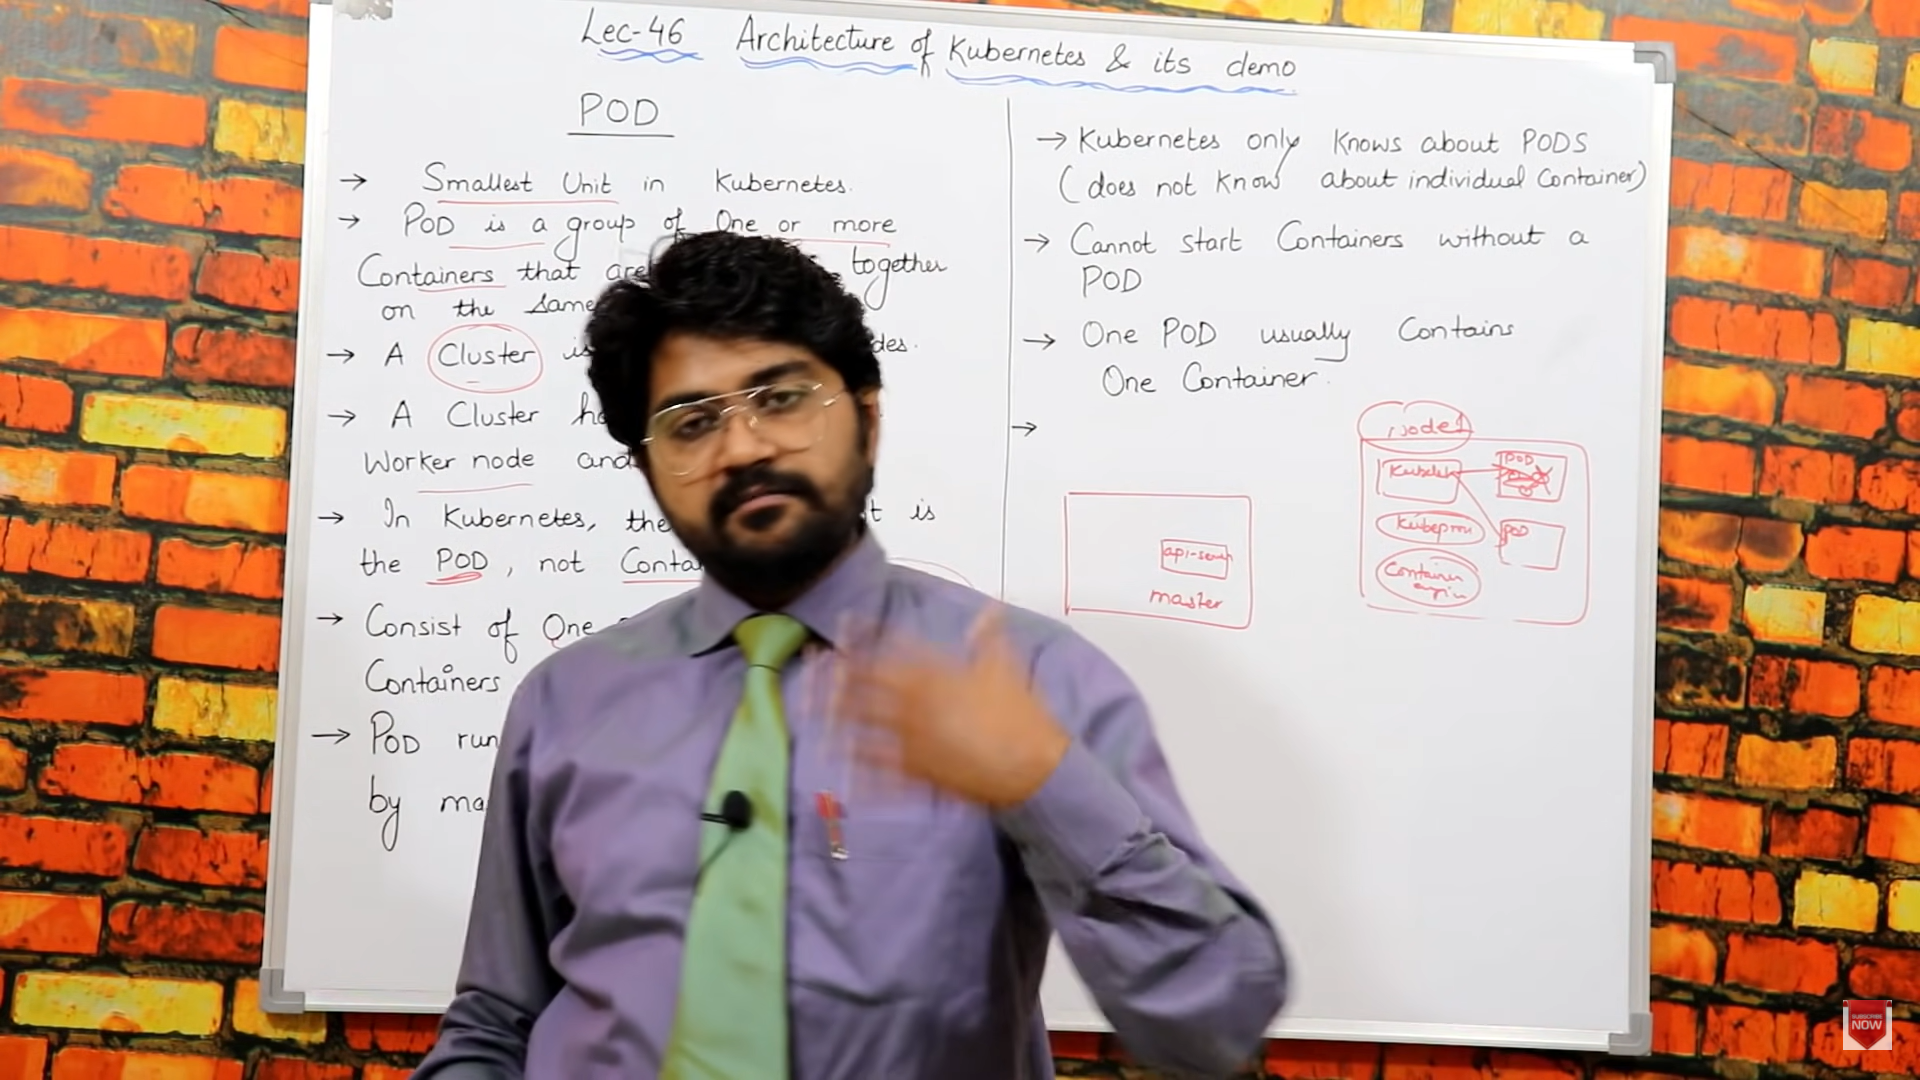 Lec-46 Architecture of Kubernetes & its demo
POD
→ Smallest Unit in Kubernetes.
→ POD is a group of One or more
Containers that are together
on the same
→ A Cluster is des.
→ A Cluster ha
Worker node and
→ In Kubernetes, the t is
the POD, not Conta
→ Consist of One
Containers
→ POD run
by ma
→ Kubernetes only Knows about PODS
(does not Know about individual Container)
→ Cannot start Containers without a
POD
→ One POD usually Contains
One Container.
→
node1
Kubelet
POD
Kubeproxy
POD
Container
engin
api-server
master
SUBSCRIBE
NOW